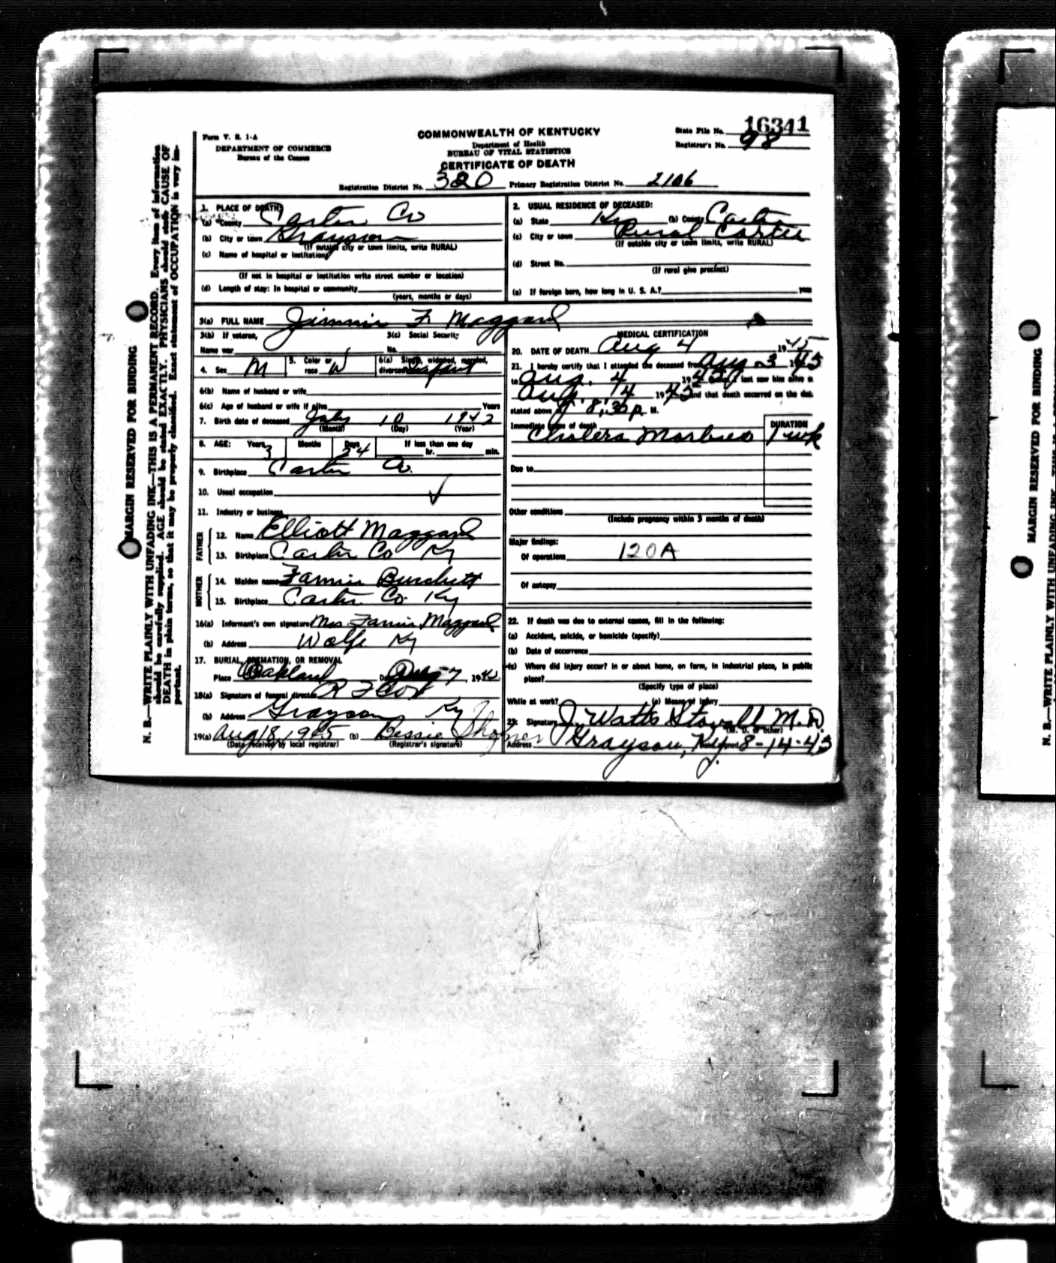 16341
Form V. S. 1-A
COMMONWEALTH OF KENTUCKY
State File No.
DEPARTMENT OF COMMERCE
Department of Health
Registrar's No. 98
Bureau of the Census
BUREAU OF VITAL STATISTICS
CERTIFICATE OF DEATH
Registration District No. 320 Primary Registration District No. 2106
1. PLACE OF DEATH
(a) County Carter Co
(b) City or town Grayson
(If outside city or town limits, write RURAL)
(c) Name of hospital or institution
(If not in hospital or institution write street number or location)
(d) Length of stay: In hospital or community
(years, months or days)
2. USUAL RESIDENCE OF DECEASED:
(a) State Ky (b) County Carter
(c) City or town Rural Carter
(If outside city or town limits, write RURAL)
(d) Street No.
(If rural give precinct)
(e) If foreign born, how long in U. S. A.? years
3(a) FULL NAME Jimmie F. Maggard
3(b) If veteran, 3(c) Social Security
Name war No.
4. Sex M 5. Color or race W 6(a) Single, widowed, married, divorced Infant
6(b) Name of husband or wife
6(c) Age of husband or wife if alive Years
7. Birth date of deceased July 10 1942
(Month) (Day) (Year)
8. AGE: Years 3 Months Days 24 If less than one day
hr. min.
9. Birthplace Carter Co.
10. Usual occupation
11. Industry or business
FATHER
12. Name Elliott Maggard
13. Birthplace Carter Co Ky
MOTHER
14. Maiden name Fannie Burchett
15. Birthplace Carter Co. Ky
16(a) Informant's own signature Mrs Fannie Maggard
(b) Address Wolfe Ky
17. BURIAL, CREMATION, OR REMOVAL
Place Oakland Date Aug 7, 194
18(a) Signature of funeral director R F Cox
(b) Address Grayson Ky
19(a) Aug 18, 1945 (b) Bessie
(Date received by local registrar) (Registrar's signature)
MEDICAL CERTIFICATION
20. DATE OF DEATH Aug 4 1945
21. I hereby certify that I attended the deceased from Aug 3 1945
to Aug. 4, 1945 last saw him alive on
Aug. 4 1945 and that death occurred on the date
stated above at 8:30 p. M.
Immediate cause of death DURATION
Cholera Morbus 1 wk
Due to
Other conditions
(Include pregnancy within 3 months of death)
Major findings:
Of operations 120A
Of autopsy
22. If death was due to external causes, fill in the following:
(a) Accident, suicide, or homicide (specify)
(b) Date of occurrence
(c) Where did injury occur? in or about home, on farm, in industrial place, in public
place?
(Specify type of place)
While at work? (e) Means of injury
23. Signature J. Watts Stovall M. D.
(M. D. or other)
Address Grayson, Ky. 8-14-45
MARGIN RESERVED FOR BINDING
N. B.—WRITE PLAINLY WITH UNFADING INK—THIS IS A PERMANENT RECORD. Every item of information
should be carefully supplied. AGE should be stated EXACTLY. PHYSICIANS should state CAUSE OF
DEATH in plain terms, so that it may be properly classified. Exact statement of OCCUPATION is very im-
portant.
MARGIN RESERVED FOR BINDING
N. B.—WRITE PLAINLY WITH UNFADING INK